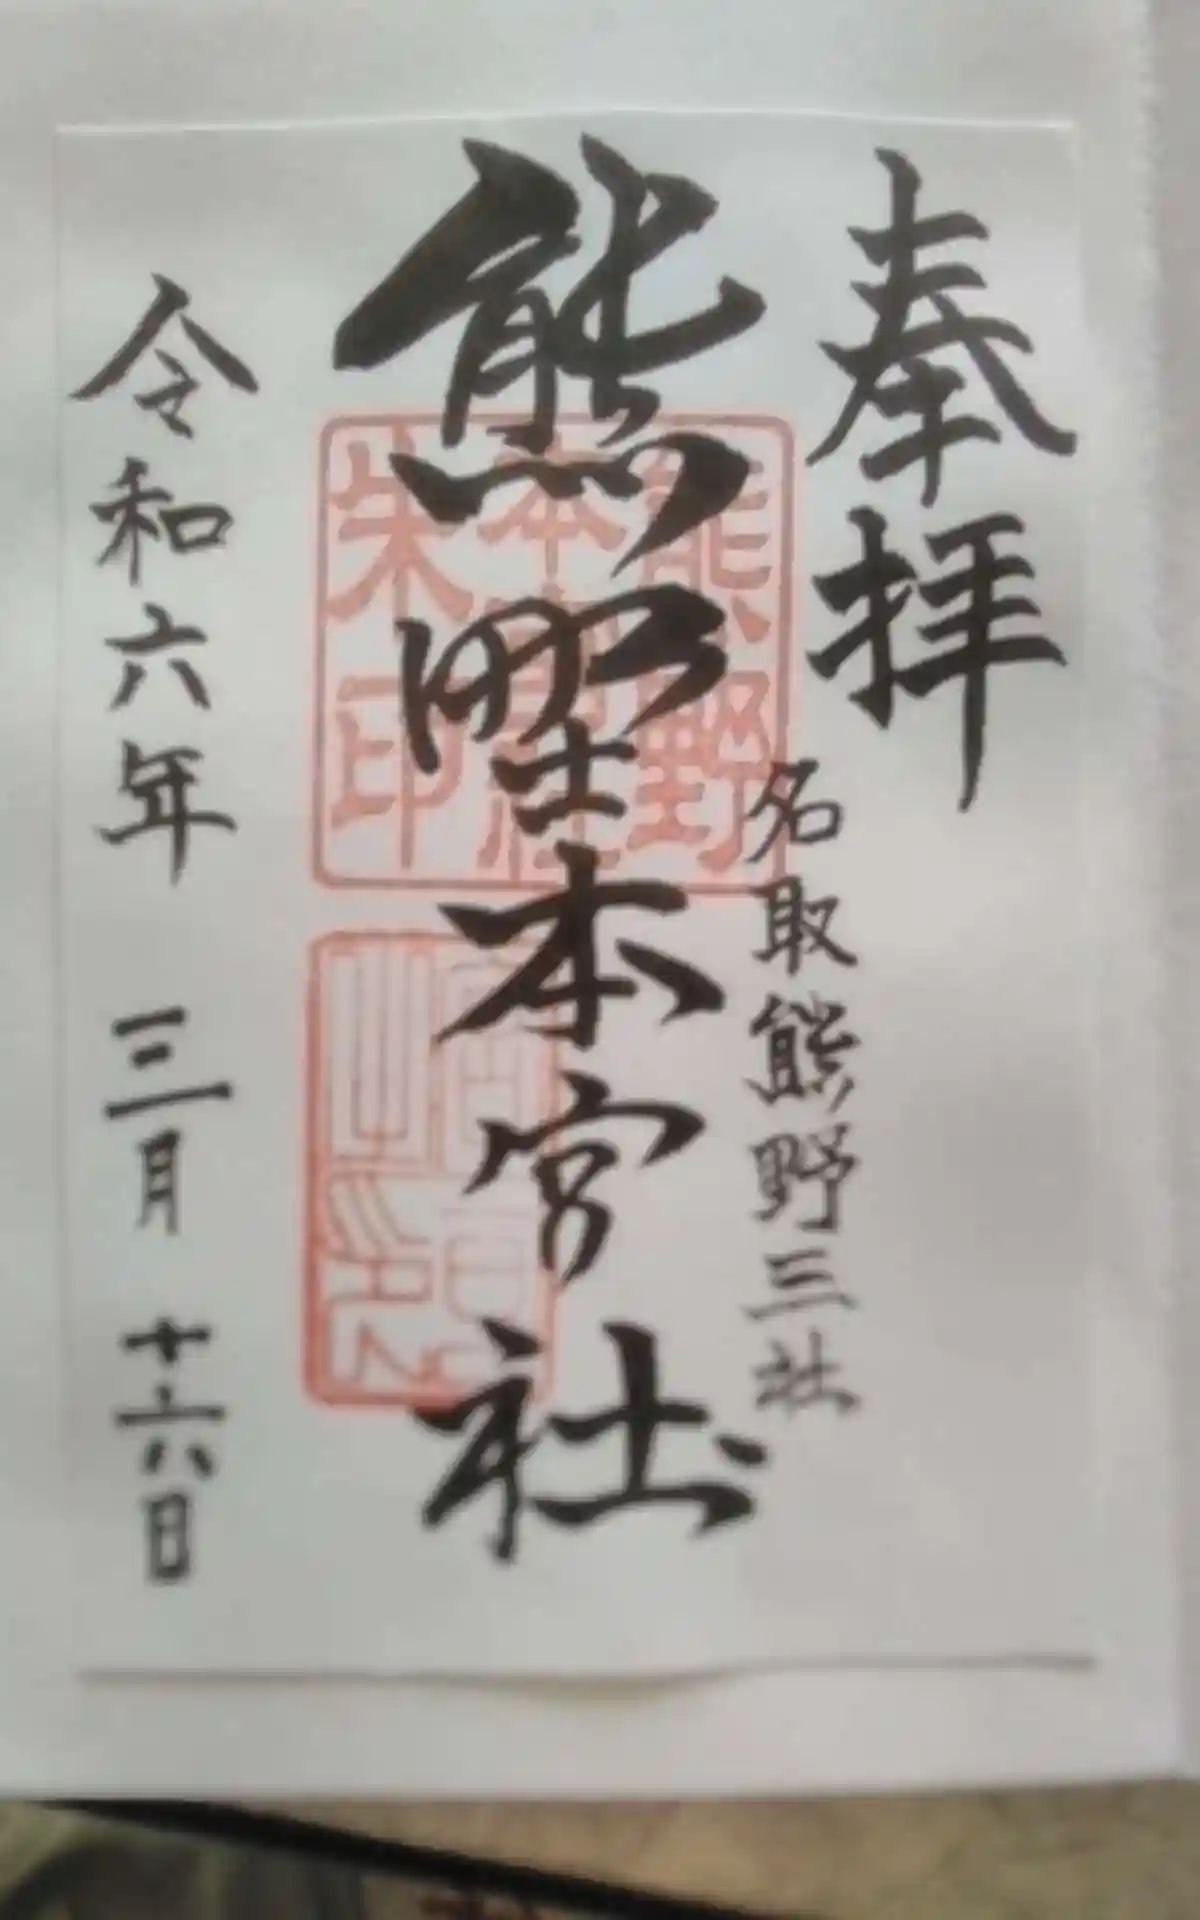 奉拝
名取熊野三社
熊野本宮社
熊野
本宮社
朱印
令和六年 三月 十六日